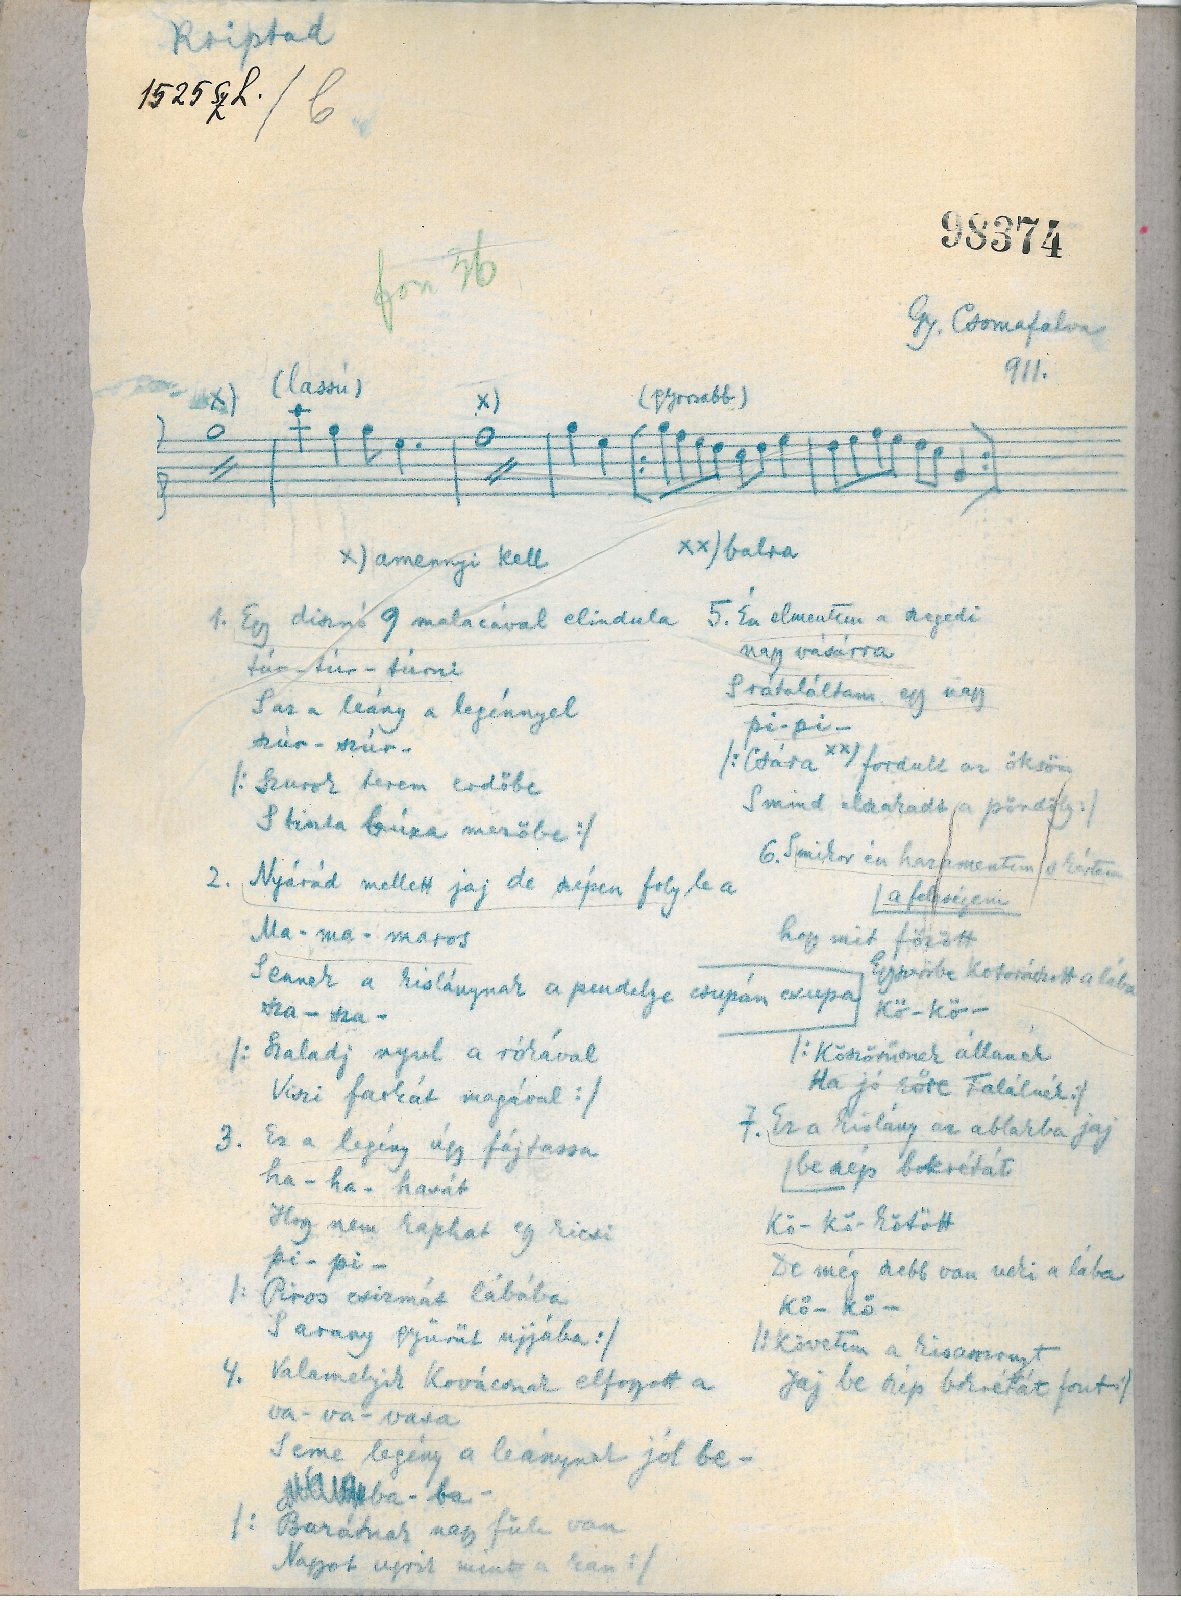 Kriptad
1525 gh. / C
98374
fon 56
Gy. Csomafalva
911.
x) (lassú) x) (gyorsabb)
x) amennyi kell xx) balra
1. Egy disznó 9 malacával elindula
túr - túr - túrni
S az a leány a legénnyel
szúr - szúr -
/: Szurok terem erdőbe
S tiszta búza mezőbe :/
2. Nyárád mellett jaj de szépen foly le a
Ma - ma - maros
S ennek a kislánynak a pendelye csupán csupa
sza - sza -
/: Szaladj nyul a rókával
Viszi farkát magával :/
3. Ez a legény úgy fájtassa
ha - ha - hasát
Hogy nem kaphat egy kicsi
pi - pi -
/: Piros csizmát lábába
S arany gyűrűt ujjába :/
4. Valamelyik Kovácsnak elfogyott a
va - va - vasa
S eme legény a leánynak jól be -
ba - ba -
/: Barátnak nagy füle van
Nagyot ugrik mint a kan :/
5. Én elmentem a szegedi
nagy vásárra
S rátaláltam egy nagy
pi - pi -
/: Csára xx) fordult az ököm
S mind elszakadt a pöndöly :/
6. S mikor én hazamentem s kértem
a feleségem
hogy mit főzött
Egyszerbe kotorászott a lába
Kö - kö -
/: Köszörűsnek állanék
Ha jó kőre találnék :/
7. Ez a kislány az ablakba jaj
be szép bokrétát
Kö - kö - kötött
De még szebb van neki a lába
Kö - kö -
/: Követem a kisasszonyt
Jaj be szép bokrétát font :/